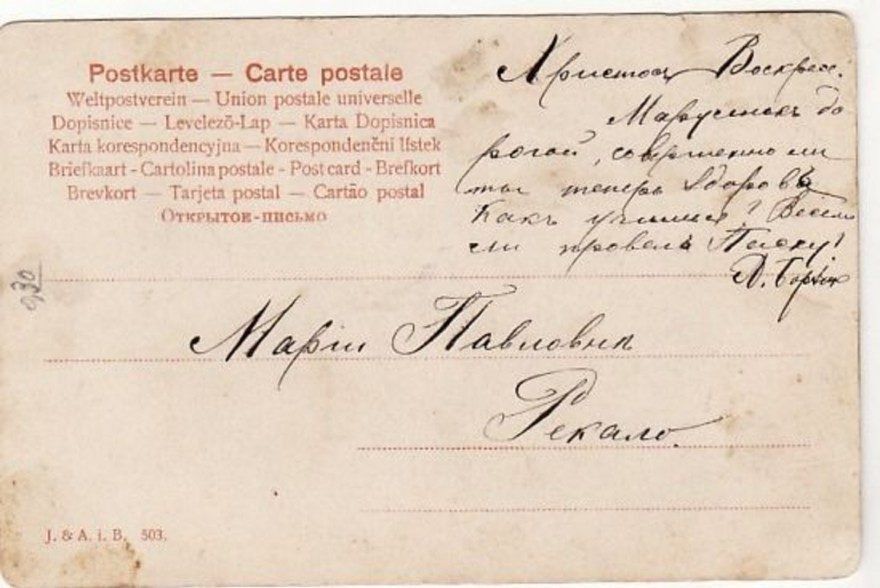 Postkarte — Carte postale
Weltpostverein — Union postale universelle
Dopisnice — Levelező-Lap — Karta Dopisnica
Karta korespondencyjna — Korespondenční lístek
Briefkaart - Cartolina postale - Post card - Brefkort
Brevkort — Tarjeta postal — Cartão postal
Открытое-письмо
Христосъ Воскресе.
до
рогой, совершенно ли
ты теперь здорова
Какъ учишся? Весело
ли провела Пасху?
930
Маріи Павловнѣ
Рекало.
J. & A. i. B. 503.